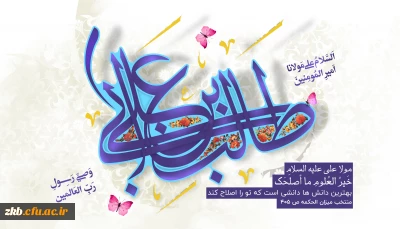 السَّلامُ عَلی مَولانا
أمیرِ المُؤمِنین
علی بن ابی طالب
وَصِیِّ رَسولِ
رَبِّ العالَمین
مولا علی علیه السلام
خَیرُ العُلومِ ما أصلَحَکَ
بهترین دانش ها دانشی است که تو را اصلاح کند
منتخب میزان الحکمه ص ۴۰۵
zkb.cfu.ac.ir